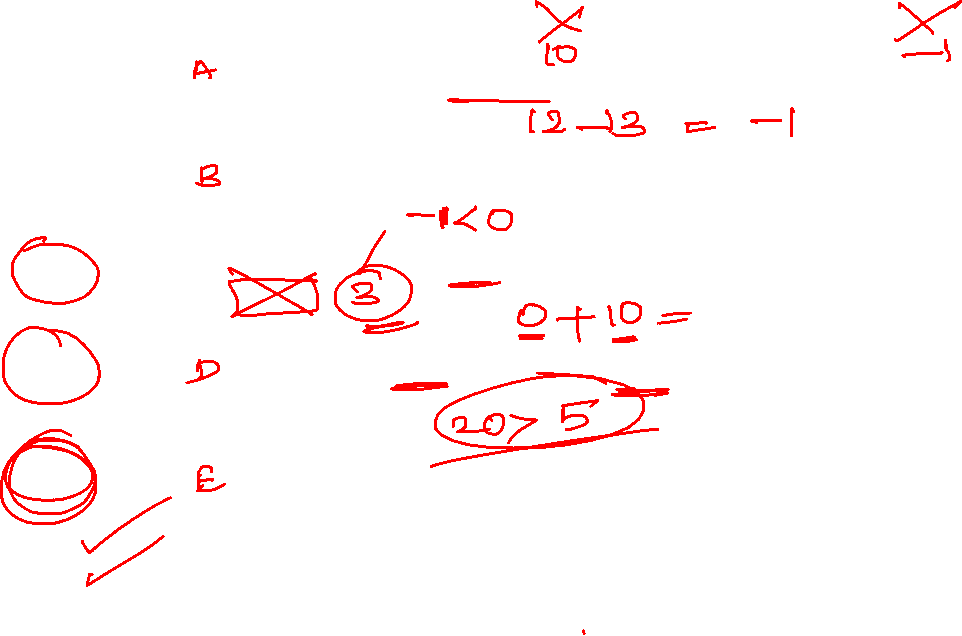 X X
10 11
A
12-13 = -1
B
-1<0
3
0+10=
D
20> 5
E